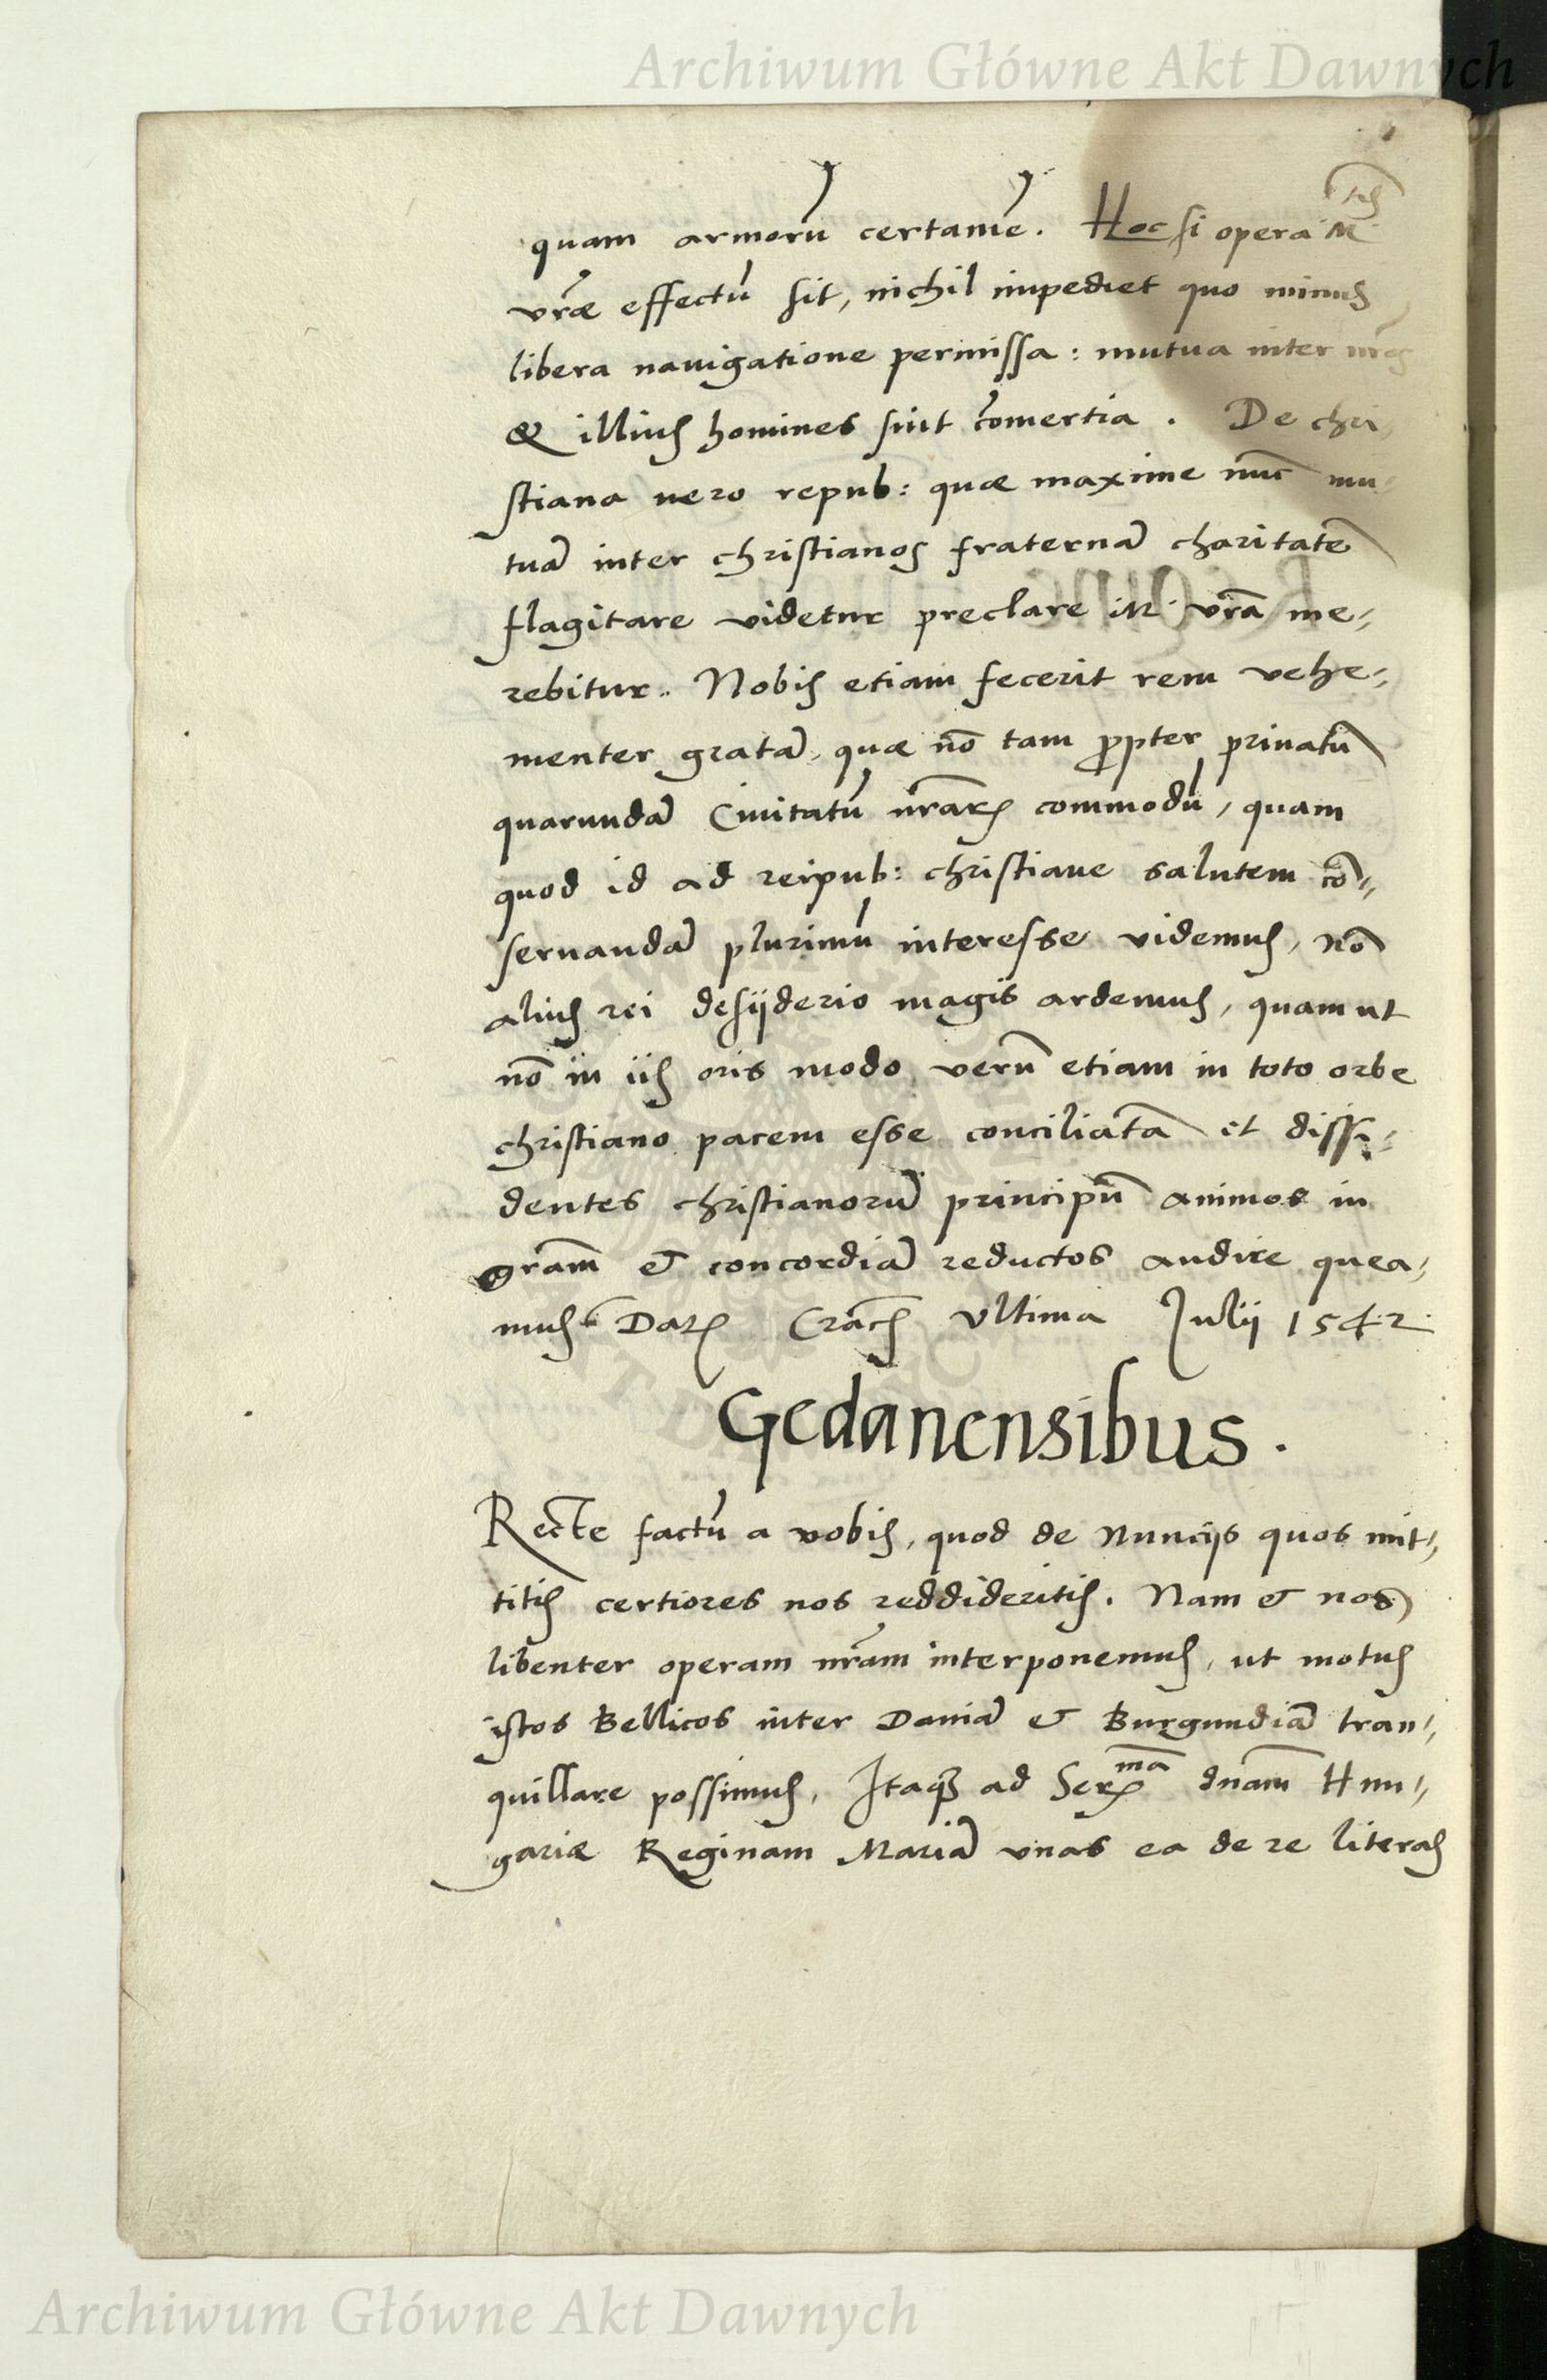 Archiwum Główne Akt Dawnych
quam armorũ certamẽ. Hoc si opera M^tis
vr̃ae effectũ sit, nichil impediet quo minus
libera nauigatione permissa: mutua inter nr̃os
& illius homines sint com̃ertia. De chri
stiana uero repub: quae maxime nũc mu
tuã inter christianos fraternã charitatẽ
flagitare videtur preclare M. vrã me„
rebitur. Nobis etiam fecerit rem vehe„
menter gratã, quae nõ tam ꝓpter priuatũ
quarundã Ciuitatũ nr̃arꝝ commodũ, quam
quod id ad reipub: christiane salutem cõ„
seruandã plurimũ interesse videmus, nõ
alius rei desyderio magis ardemus, quam ut
nõ in iis oris modo verũ etiam in toto orbe
christiano pacem esse conciliatã et dissi„
dentes christianorũ principũ animos in
gr̃am & concordiã reductos audire quea„
mus. Datꝝ Crac̃ Vltima Julii 1542
Gedanensibus.
Recte factũ a vobis, quod de Nuncijs quos mit„
titis certiores nos reddideritis. Nam & nos
libenter operam nr̃am interponemus, ut motus
istos Bellicos inter Daniã & Burgundiã tran„
quillare possimus, Itaqꝫ ad Ser^mã dñam Hun„
gariae Reginam Mariã vnas ea de re literas
Archiwum Główne Akt Dawnych